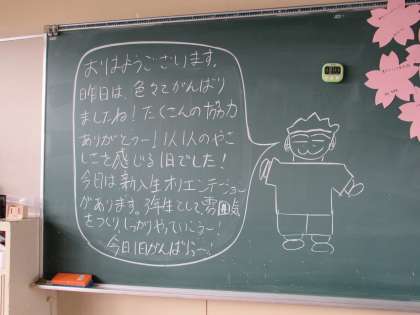 おはようございます。
昨日は、色々とがんばり
ましたね！たくさんの協力
ありがとうー！1人1人のやさ
しさを感じる1日でした！
今日は新入生オリエンテーション
があります。弥生として、雰囲気
をつくり、しっかりやっていこうー！
今日1日がんばろうーっ！